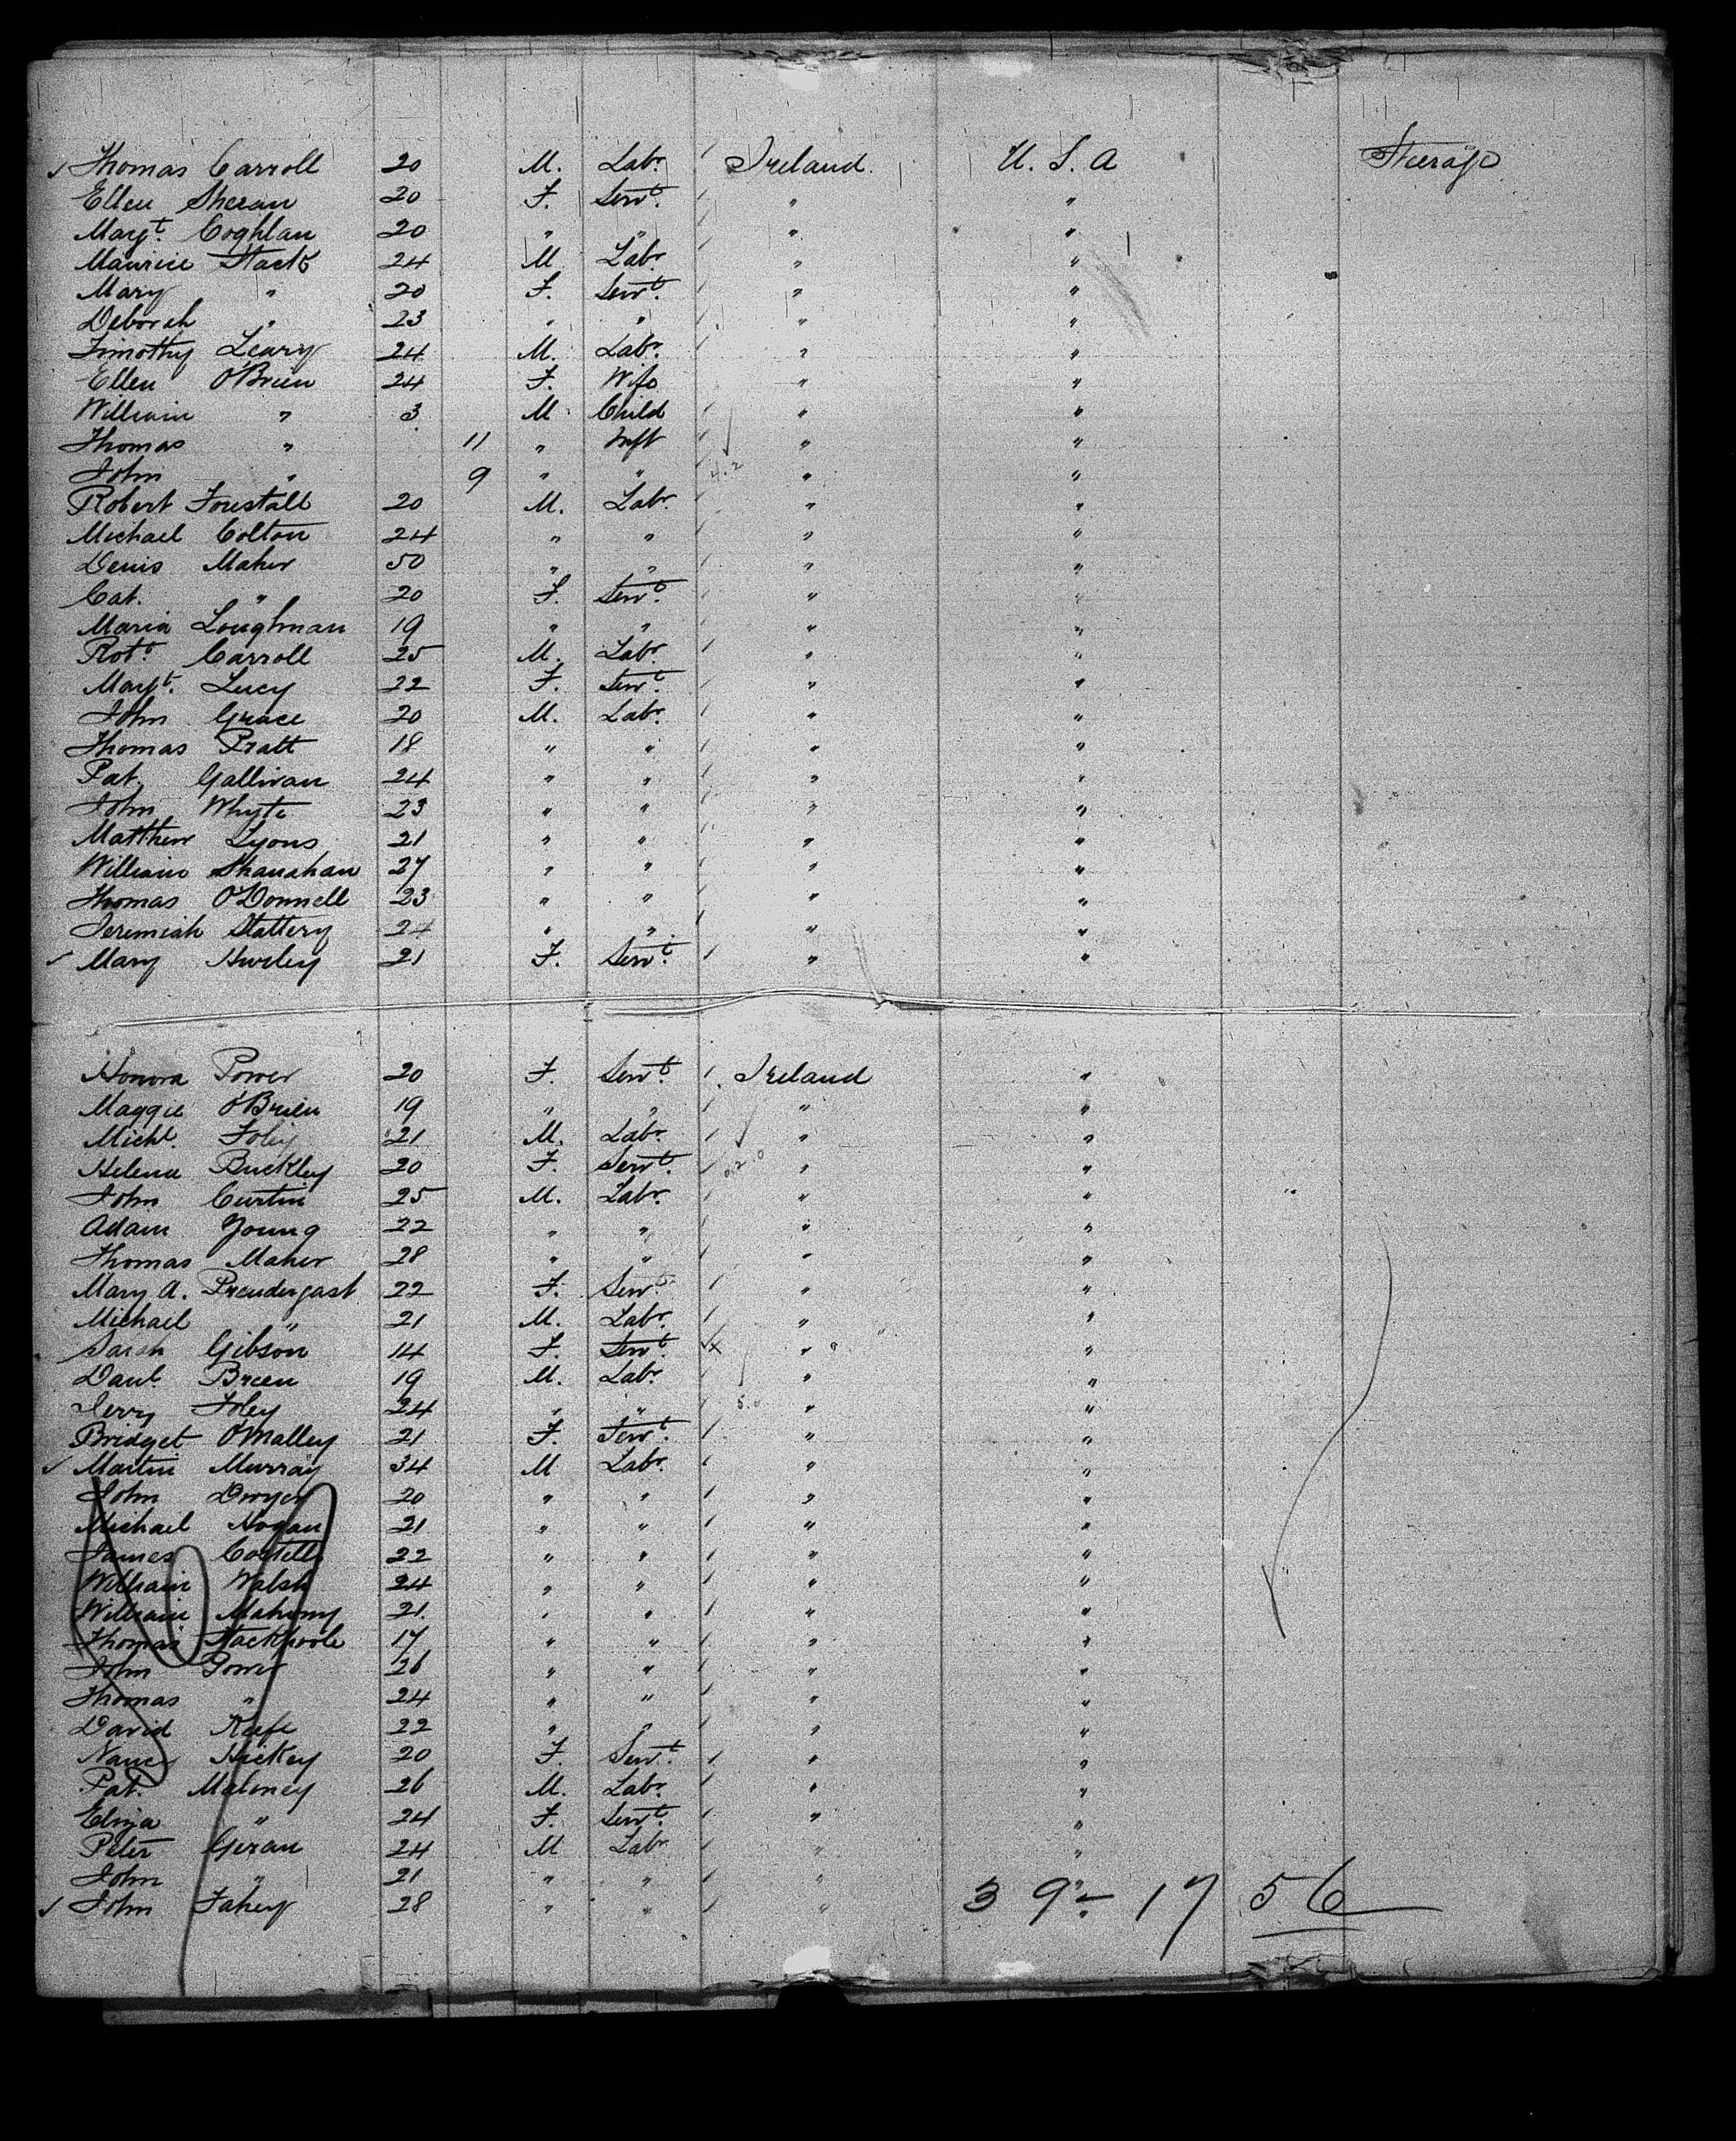 Thomas Carroll 20 M. Labr. Ireland. U. S. A Steerage
Ellen Sheran 20 F. Servt. " "
Margt. Coghlan 20 " " " "
Maurice Stack 24 M Labr. " "
Mary " 20 F. Servt. " "
Deborah " 23 " " " "
Timothy Leary 24 M. Labr. " "
Ellen O'Brien 24 F. Wife " "
William " 3 M Child " "
Thomas " 11 " Inft " "
John " 9 " " " "
Robert Forestall 20 M. Labr. " "
Michael Colton 24 " " " "
Denis Maher 50 " " " "
Cat. " 20 F. Servt. " "
Maria Loughman 19 " " " "
Robt. Carroll 25 M. Labr. " "
Margt. Lucy 22 F. Servt. " "
John Grace 20 M. Labr. " "
Thomas Pratt 18 " " " "
Pat. Gallivan 24 " " " "
John Whyte 23 " " " "
Matthew Lyons 21 " " " "
William Shanahan 27 " " " "
Thomas O'Donnell 23 " " " "
Jeremiah Slattery 24 " " " "
Mary Hurley 21 F. Servt. " "
Honora Power 20 F. Servt. Ireland "
Maggie O'Brien 19 " " " "
Michl. Foley 21 M. Labr. " "
Helena Buckley 20 F. Servt. " "
John Curtin 25 M. Labr. " "
Adam Young 22 " " " "
Thomas Maher 28 " " " "
Mary A. Prendergast 22 F. Servt. " "
Michael " 21 M. Labr. " "
Sarah Gibson 14 F. Servt. " "
Danl. Breen 19 M. Labr. " "
Jerry Foley 24 " " " "
Bridget O'Malley 21 F. Servt. " "
Martin Murray 34 M Labr. " "
John Dwyer 20 " " " "
Michael Hogan 21 " " " "
James Costello 22 " " " "
William Walsh 24 " " " "
William Mahony 21. " " " "
Thomas Stackpole 17 " " " "
John Power 26 " " " "
Thomas " 24 " " " "
David Keefe 22 " " " "
Nance Hickey 20 F. Servt. " "
Pat. Maloney 26 M. Labr. " "
Eliza " 24 F. Servt. " "
Peter Geran 24 M Labr " "
John " 21 " " " "
John Fahey 28 " " " " 39 - 17 56